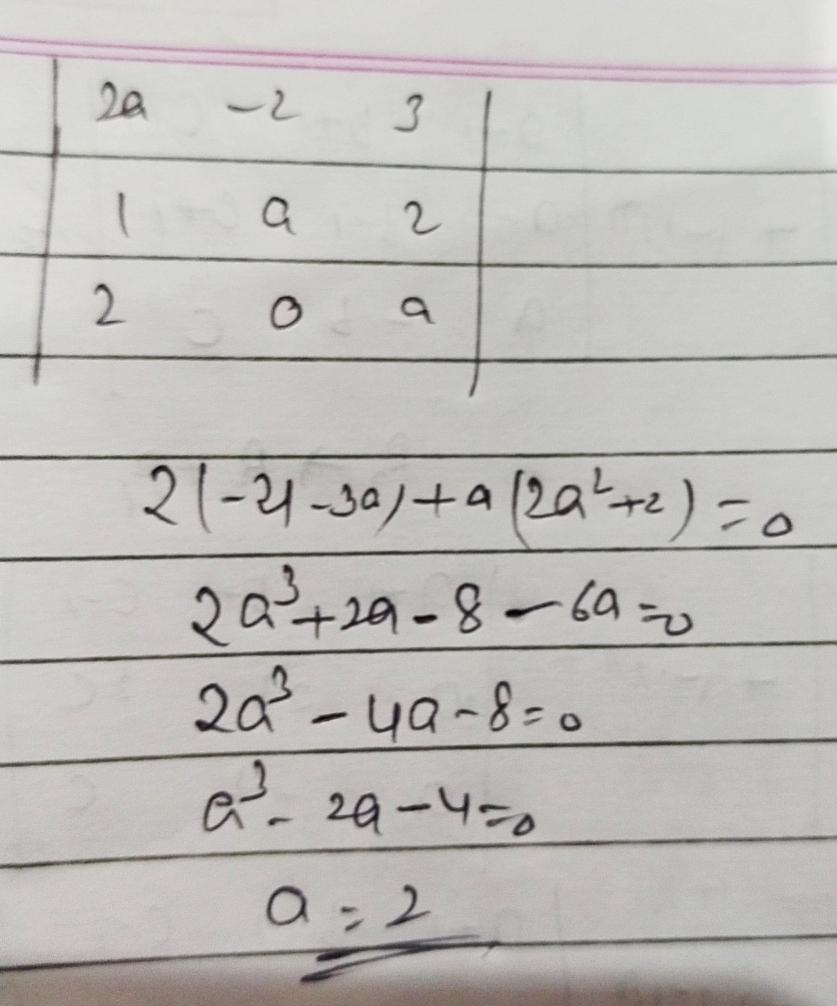 | 2a -2 3 |
| 1 a 2 |
| 2 0 a |
2(-4-3a)+a(2a²+2)=0
2a³+2a-8-6a=0
2a³-4a-8=0
a³-2a-4=0
a=2